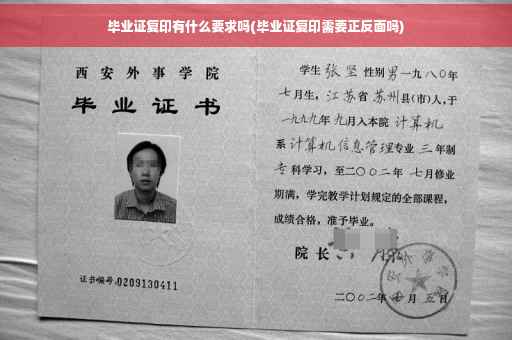 毕业证复印有什么要求吗(毕业证复印需要正反面吗)
西安外事学院
毕业证书
证书编号:0209130411
学生 张坚 性别男 一九八〇年
七月生，江苏省 苏州县(市)人，于
一九九九年 九月入本院 计算机
系 计算机信息管理专业 三 年制
专 科学习，至二〇〇二年 七月修业
期满，学完教学计划规定的全部课程，
成绩合格，准予毕业。
院长
二〇〇二年 七 月 五 日